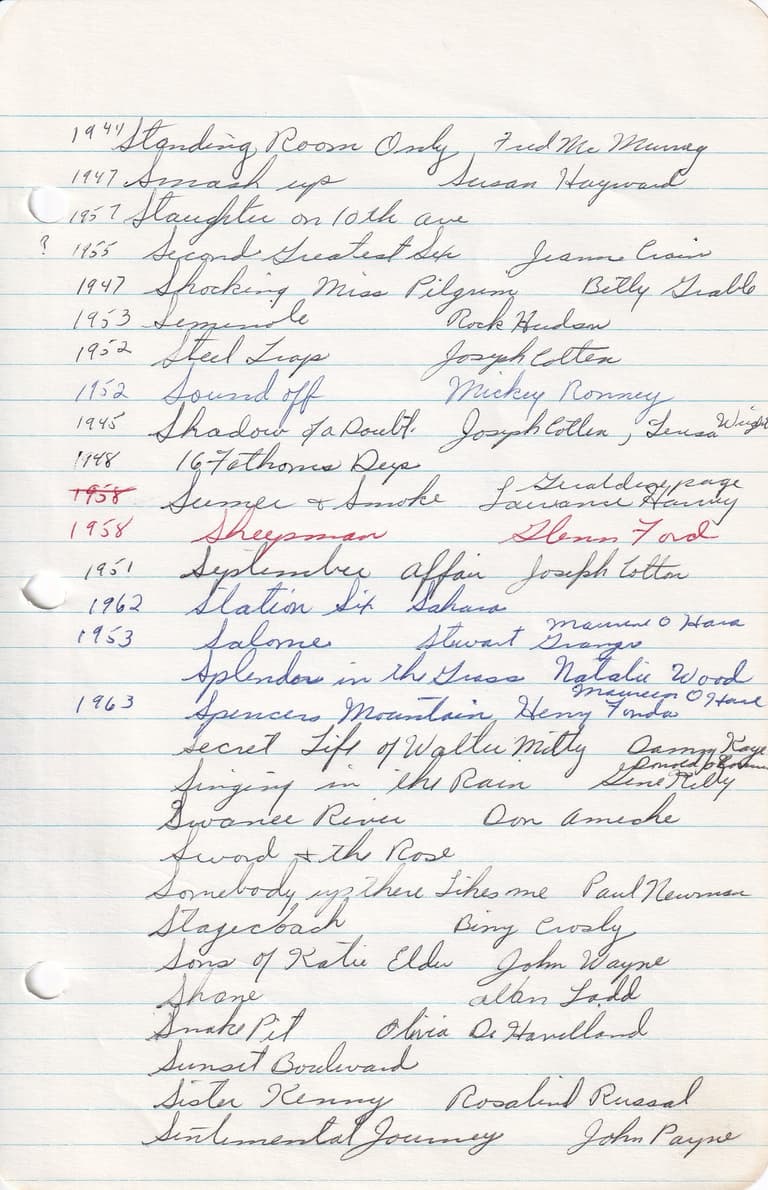 1944 Standing Room Only Fred Mc Murray
1947 Smash up Susan Hayward
1957 Slaughter on 10th ave
? 1955 Second Greatest Sex Jeanne Crain
1947 Shocking Miss Pilgrim Betty Grable
1953 Seminole Rock Hudson
1952 Steel Trap Joseph Cotten
1952 Sound off Mickey Ronney
1945 Shadow of a Doubt. Joseph Cotten, Teresa Wright
1948 16 Fathoms Deep
Geraldine page
1958 Sumer & Smoke Lawrance Harvey
1958 Sheepman Glenn Ford
1951 September affair Joseph Cotton
1962 Station Six Sahara
Maureen O Hara
1953 Salome Stewart Granger
Splendor in the Grass Natalie Wood
Maureen O Hara
1963 Spencers Mountain Henry Fonda
Secret Life of Walter Mitty Danny Kaye
Donald o Connor
Singing in the Rain Gene Kelly
Swanee River Don Ameche
Sword & the Rose
Somebody up there Likes me Paul Newman
Stagecoach Bing Crosby
Sons of Katie Elder John Wayne
Shane Alan Ladd
Snake Pit Olivia De Havelland
Sunset Boulevard
Sister Kenny Rosalind Russal
Sentemental Journey John Payne